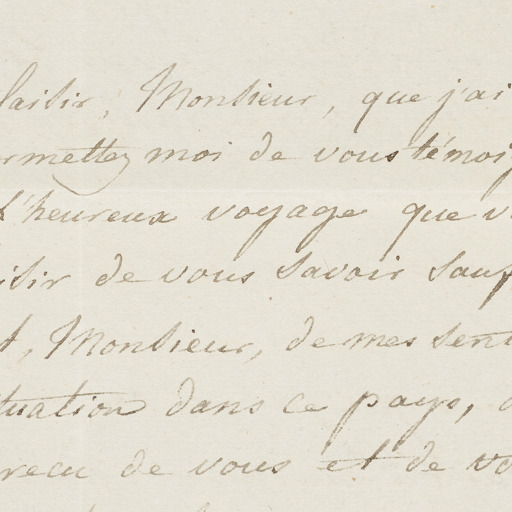 laisir, Monsieur, que j'ai
ermettez moi de vous témoig
l'heureux voyage que v
isir de vous savoir sauf
t, Monsieur, de mes sent
tuation dans ce pays,
recu de vous et de vo